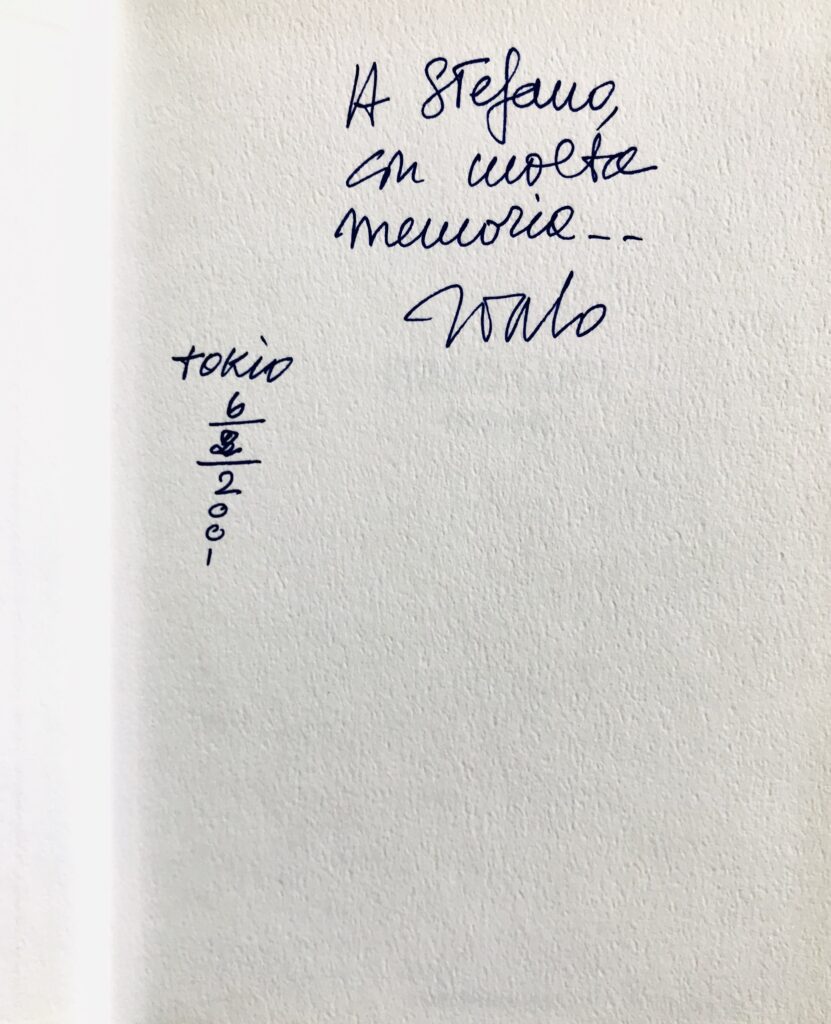 A Stefano,
con molta
memoria--
tokio
6
2
0
0
1